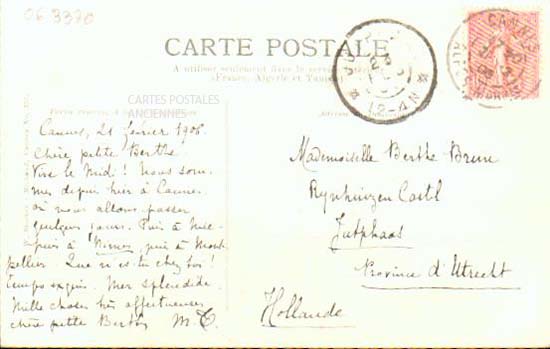 06 3370
CARTE POSTALE
A utiliser seulement dans le service
(France, Algérie et Tunisie)
CARTES POSTALES
ANCIENNES
CANNES
12-AN
Cannes, 21 février 1906.
Chère petite Berthe
Vive le Midi! Nous som-
mes depuis hier à Cannes
où nous allons passer
quelques jours. Puis à Nice
puis à Nimes, puis à Mont-
pellier. Que n'es-tu chez toi!
temps exquis. Mer splendide.
Mille choses très affectueuses
chère petite Berthe M. C.
Mademoiselle Berthe Brune
Rynhuizen Castl
Jutphaas
Province d'Utrecht
Hollande